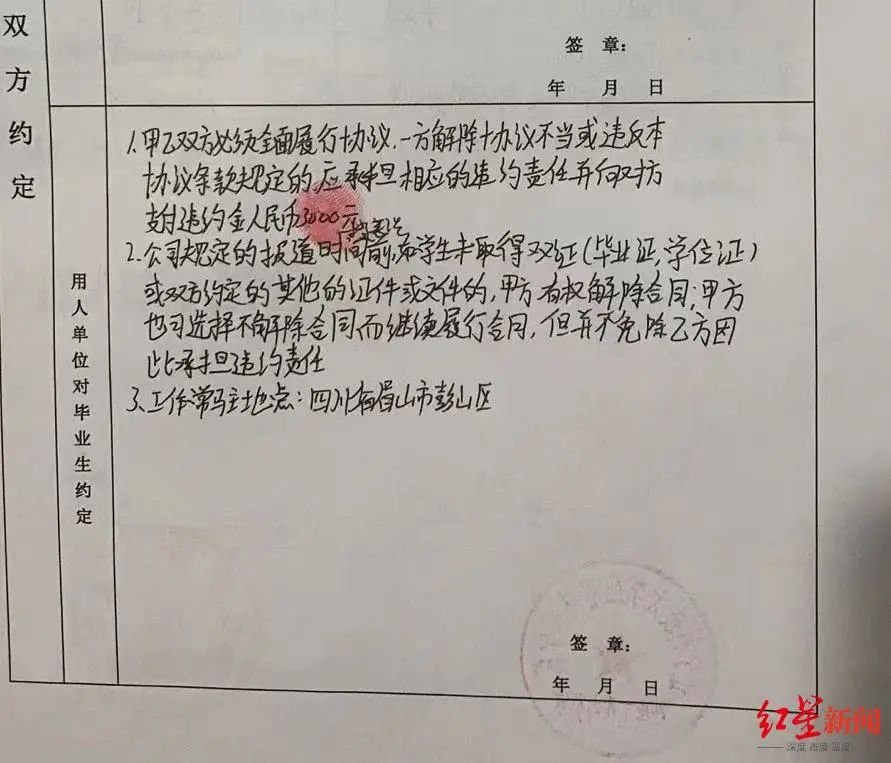 双方约定
签 章：
年 月 日
用人单位对毕业生约定
1.甲乙双方必须全面履行协议，一方解除协议不当或违反本
协议条款规定的，应承担相应的违约责任并向对方
支付违约金人民币3000元
2.公司规定的报道时间前，如学生未取得双证（毕业证，学位证）
或双方约定的其他的证件或文件的，甲方有权解除合同；甲方
也可选择不解除合同而继续履行合同，但并不免除乙方因
此承担违约责任
3、工作常驻地点：四川省眉山市彭山区
签 章：
年 月 日
红星新闻
深度 态度 温度